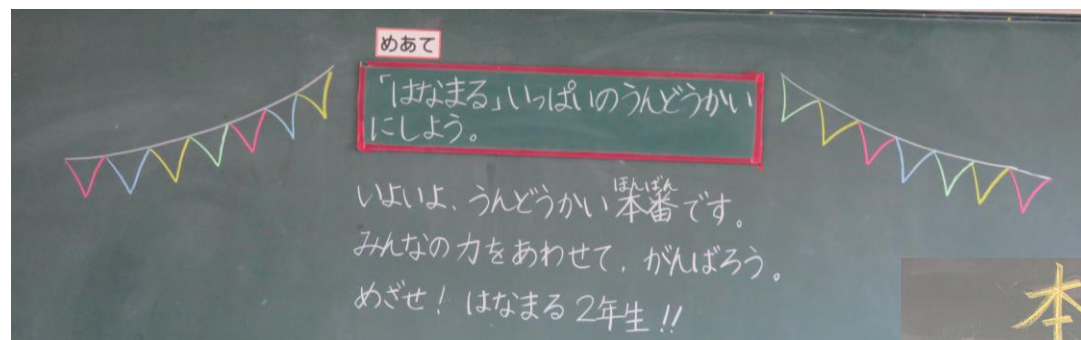 めあて
「はなまる」いっぱいのうんどうかい
にしよう。
ほんばん
いよいよ、うんどうかい本番です。
みんなの力をあわせて、がんばろう。
めざせ!はなまる2年生!!
本